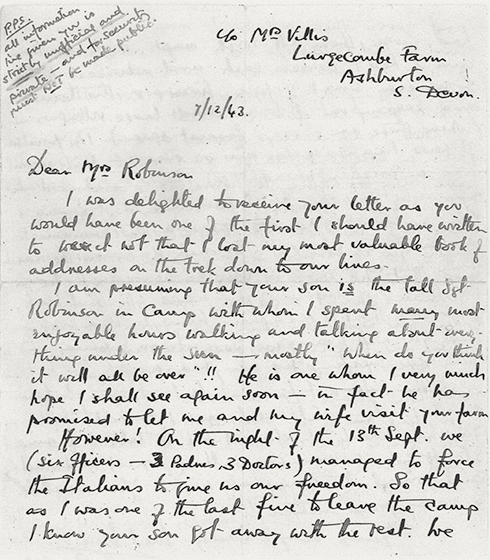 P.P.S.
all information
I've given you is
strictly unofficial and
private — and for security
must NOT be made public.
c/o Mrs Villis
Lurgecombe Farm
Ashburton
S. Devon.
7/12/43.
Dear Mrs Robinson
I was delighted to receive your letter as you
would have been one of the first I should have written
to were it not that I lost my most valuable book of
addresses on the trek down to our lines.
I am presuming that your son is the tall Sgt
Robinson in Camp with whom I spent many most
enjoyable hours walking and talking about every-
thing under the sun — mostly "when do you think
it will all be over"!! He is one whom I very much
hope I shall see again soon — in fact he has
promised to let me and my wife visit your farm
However! On the night of the 13th Sept. we
(six officers — 3 Padres, 3 Doctors) managed to force
the Italians to give us our freedom. So that
as I was one of the last five to leave the camp
I know your son got away with the rest. We